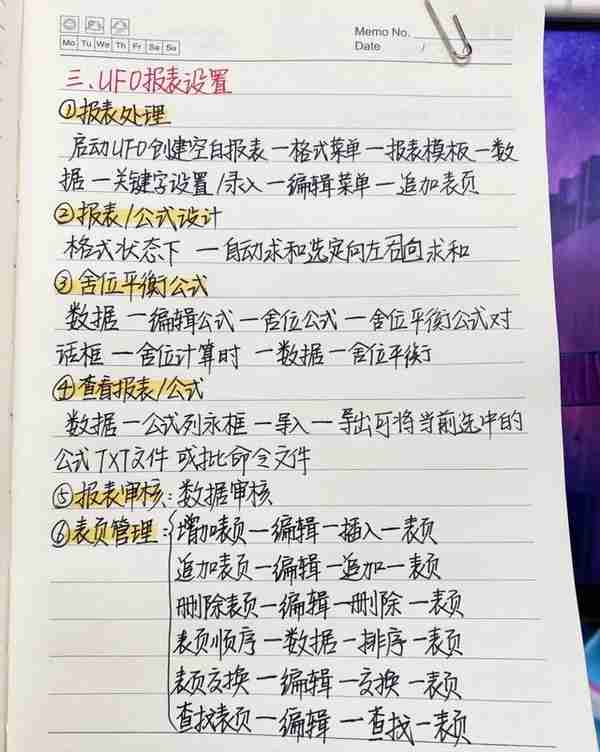 Memo No.
Mo Tu We Th Fr Sa Su
Date /
三、UFO报表设置
①报表处理
启动UFO创建空白报表一格式菜单一报表模板一数
据一关键字设置/录入一编辑菜单一追加表页
②报表/公式设计
格式状态下一自动求和选定向左右向求和
③舍位平衡公式
数据一编辑公式一舍位公式一舍位平衡公式对
话框一舍位计算时一数据一舍位平衡
④查看报表/公式
数据一公式列永框一导入一导出可将当前选中的
公式TXT文件或批命令文件
⑤报表审核:数据审核
⑥表页管理:增加表页一编辑一插入一表页
追加表页一编辑一追加一表页
删除表页一编辑一删除一表页
表页顺序一数据一排序一表页
表页交换一编辑一交换一表页
查找表页一编辑一查找一表页